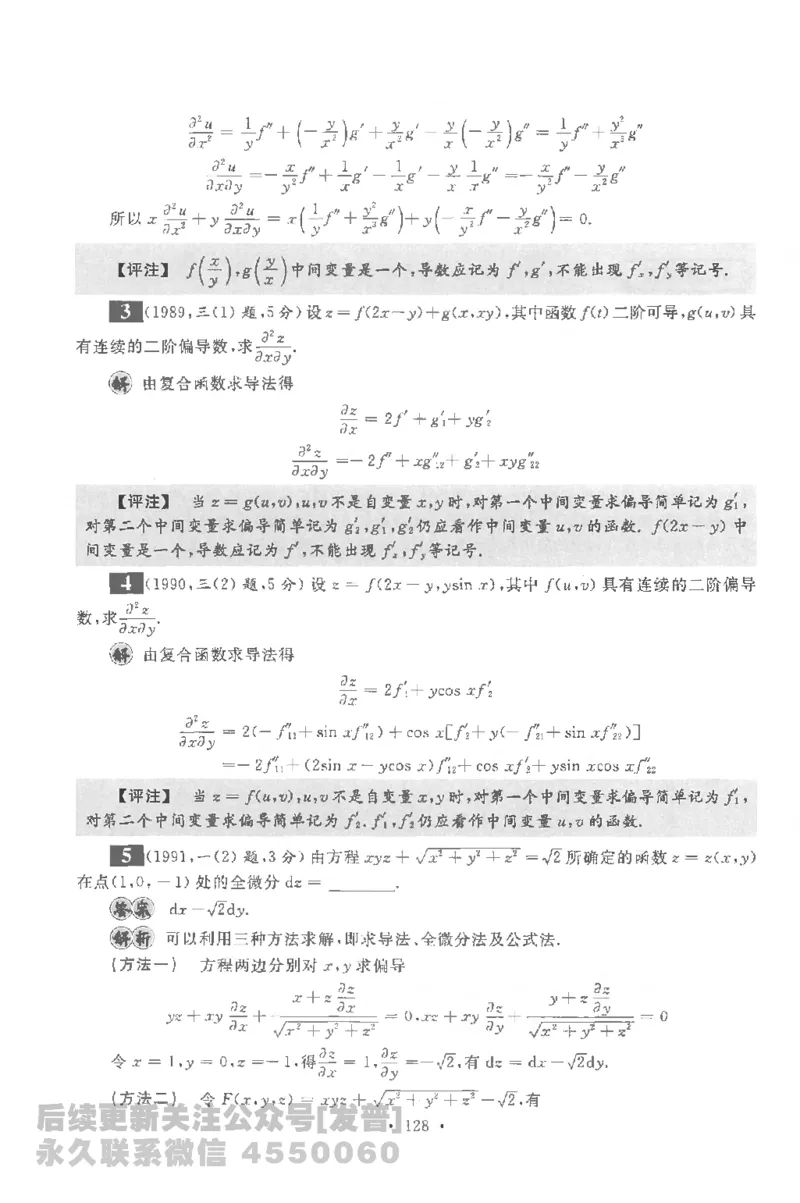 ∂²u/∂x² = 1/y f″ + (−y/x²)g′ + y/x² g′ − y/x(−y/x²)g″ = 1/y f″ + y²/x³ g″
∂²u/∂x∂y = −x/y² f″ + 1/x g′ − 1/x g′ − y/x 1/x g″ = −x/y² f″ − y/x² g″
所以 x ∂²u/∂x² + y ∂²u/∂x∂y = x(1/y f″ + y²/x³ g″) + y(−x/y² f″ − y/x² g″) = 0.
【评注】 f(x/y),g(y/x)中间变量是一个,导数应记为 f′,g′,不能出现 f′ₓ,f′ᵧ等记号.
3 (1989,三(1)题,5分)设 z = f(2x−y)+g(x,xy),其中函数 f(t)二阶可导,g(u,v)具
有连续的二阶偏导数,求 ∂²z/∂x∂y.
解 由复合函数求导法得
∂z/∂x = 2f′ + g′₁ + yg′₂
∂²z/∂x∂y = −2f″ + xg″₁₂ + g′₂ + xyg″₂₂
【评注】 当 z = g(u,v),u,v不是自变量 x,y 时,对第一个中间变量求偏导简单记为 g′₁,
对第二个中间变量求偏导简单记为 g′₂,g′₁,g′₂仍应看作中间变量 u,v 的函数. f(2x−y) 中
间变量是一个,导数应记为 f′,不能出现 f′ₓ,f′ᵧ等记号.
4 (1990,三(2)题,5分)设 z = f(2x−y,ysin x),其中 f(u,v)具有连续的二阶偏导
数,求 ∂²z/∂x∂y.
解 由复合函数求导法得
∂z/∂x = 2f′₁ + ycos xf′₂
∂²z/∂x∂y = 2(−f″₁₁ + sin xf″₁₂) + cos x[f′₂ + y(−f″₂₁ + sin xf″₂₂)]
= −2f″₁₁ + (2sin x − ycos x)f″₁₂ + cos xf′₂ + ysin xcos xf″₂₂
【评注】 当 z = f(u,v),u,v不是自变量 x,y 时,对第一个中间变量求偏导简单记为 f′₁,
对第二个中间变量求偏导简单记为 f′₂. f′₁,f′₂仍应看作中间变量 u,v 的函数.
5 (1991,一(2)题,3分)由方程 xyz + √(x² + y² + z²) = √2 所确定的函数 z = z(x,y)
在点(1,0,−1)处的全微分 dz = ______.
答案 dx − √2dy.
解析 可以利用三种方法求解,即求导法、全微分法及公式法.
(方法一) 方程两边分别对 x,y 求偏导
yz + xy ∂z/∂x + (x + z ∂z/∂x)/√(x² + y² + z²) = 0,xz + xy ∂z/∂y + (y + z ∂z/∂y)/√(x² + y² + z²) = 0
令 x = 1,y = 0,z = −1,得 ∂z/∂x = 1,∂z/∂y = −√2,有 dz = dx − √2dy.
(方法二) 令 F(x,y,z) = xyz + √(x² + y² + z²) − √2,有
· 128 ·
后续更新关注公众号[发普]
永久联系微信 4550060